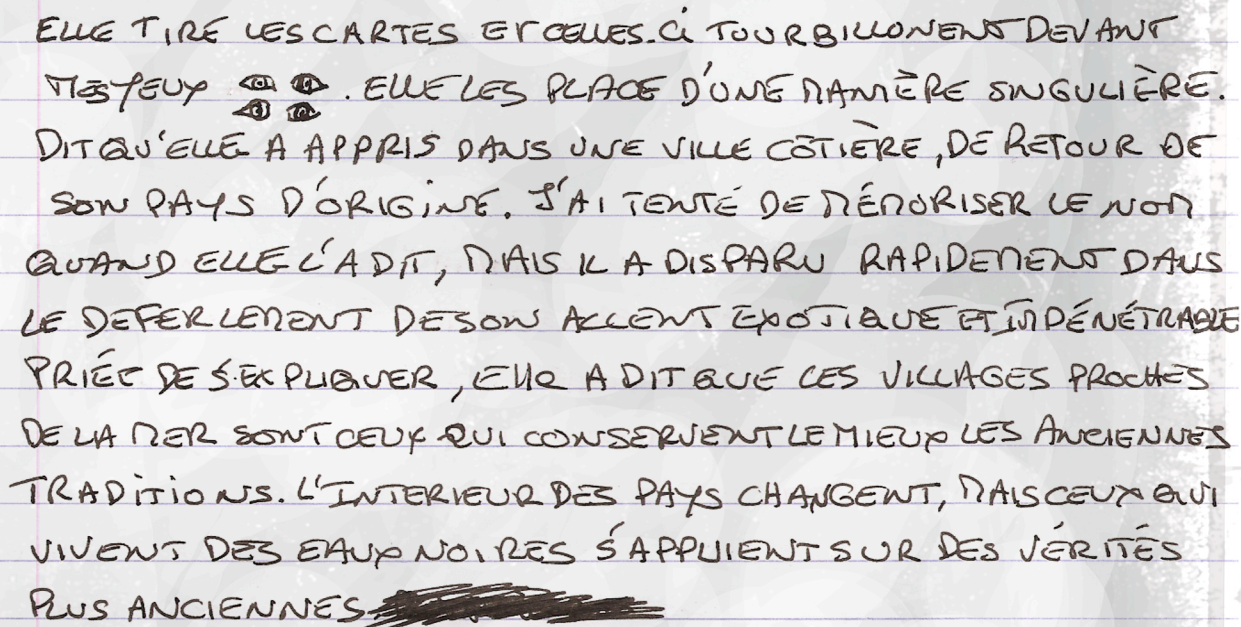 ELLE TIRE LES CARTES ET CELLES-CI TOURBILLONENT DEVANT
MES YEUX . ELLE LES PLACE D'UNE MANIÈRE SINGULIÈRE.
DIT QU'ELLE A APPRIS DANS UNE VILLE CÔTIÈRE, DE RETOUR DE
SON PAYS D'ORIGINE. J'AI TENTÉ DE MÉMORISER LE NOM
QUAND ELLE L'A DIT, MAIS IL A DISPARU RAPIDEMENT DANS
LE DEFERLEMENT DE SON ACCENT EXOTIQUE ET IMPÉNÉTRABLE
PRIÉE DE S'EXPLIQUER, ELLE A DIT QUE LES VILLAGES PROCHES
DE LA MER SONT CEUX QUI CONSERVENT LE MIEUX LES ANCIENNES
TRADITIONS. L'INTERIEUR DES PAYS CHANGENT, MAIS CEUX QUI
VIVENT DES EAUX NOIRES S'APPUIENT SUR DES VÉRITÉS
PLUS ANCIENNES